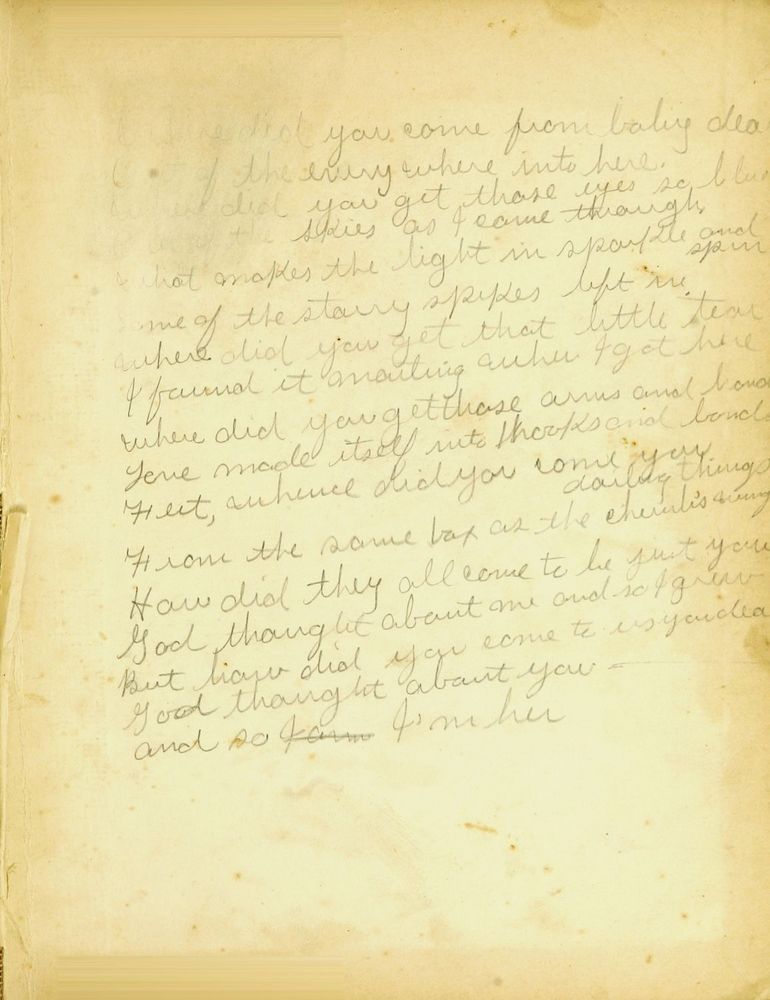 did you come from baby dea
of the everywhere into here.
did you get those eyes so blu
the skies as I came through
what makes the light in sparkle and
spin
me of the starry spikes left in.
where did you get that little tear
I found it waiting when I got here
where did you get those arms and hand
Love made itself into hooks and bands
Feet, whence did you come you
darling things
From the same box as the cherubs wing
How did they all come to be just you
God thought about me and so I grew
But how did you come to us you dea
God thought about you –
and so I am I'm her